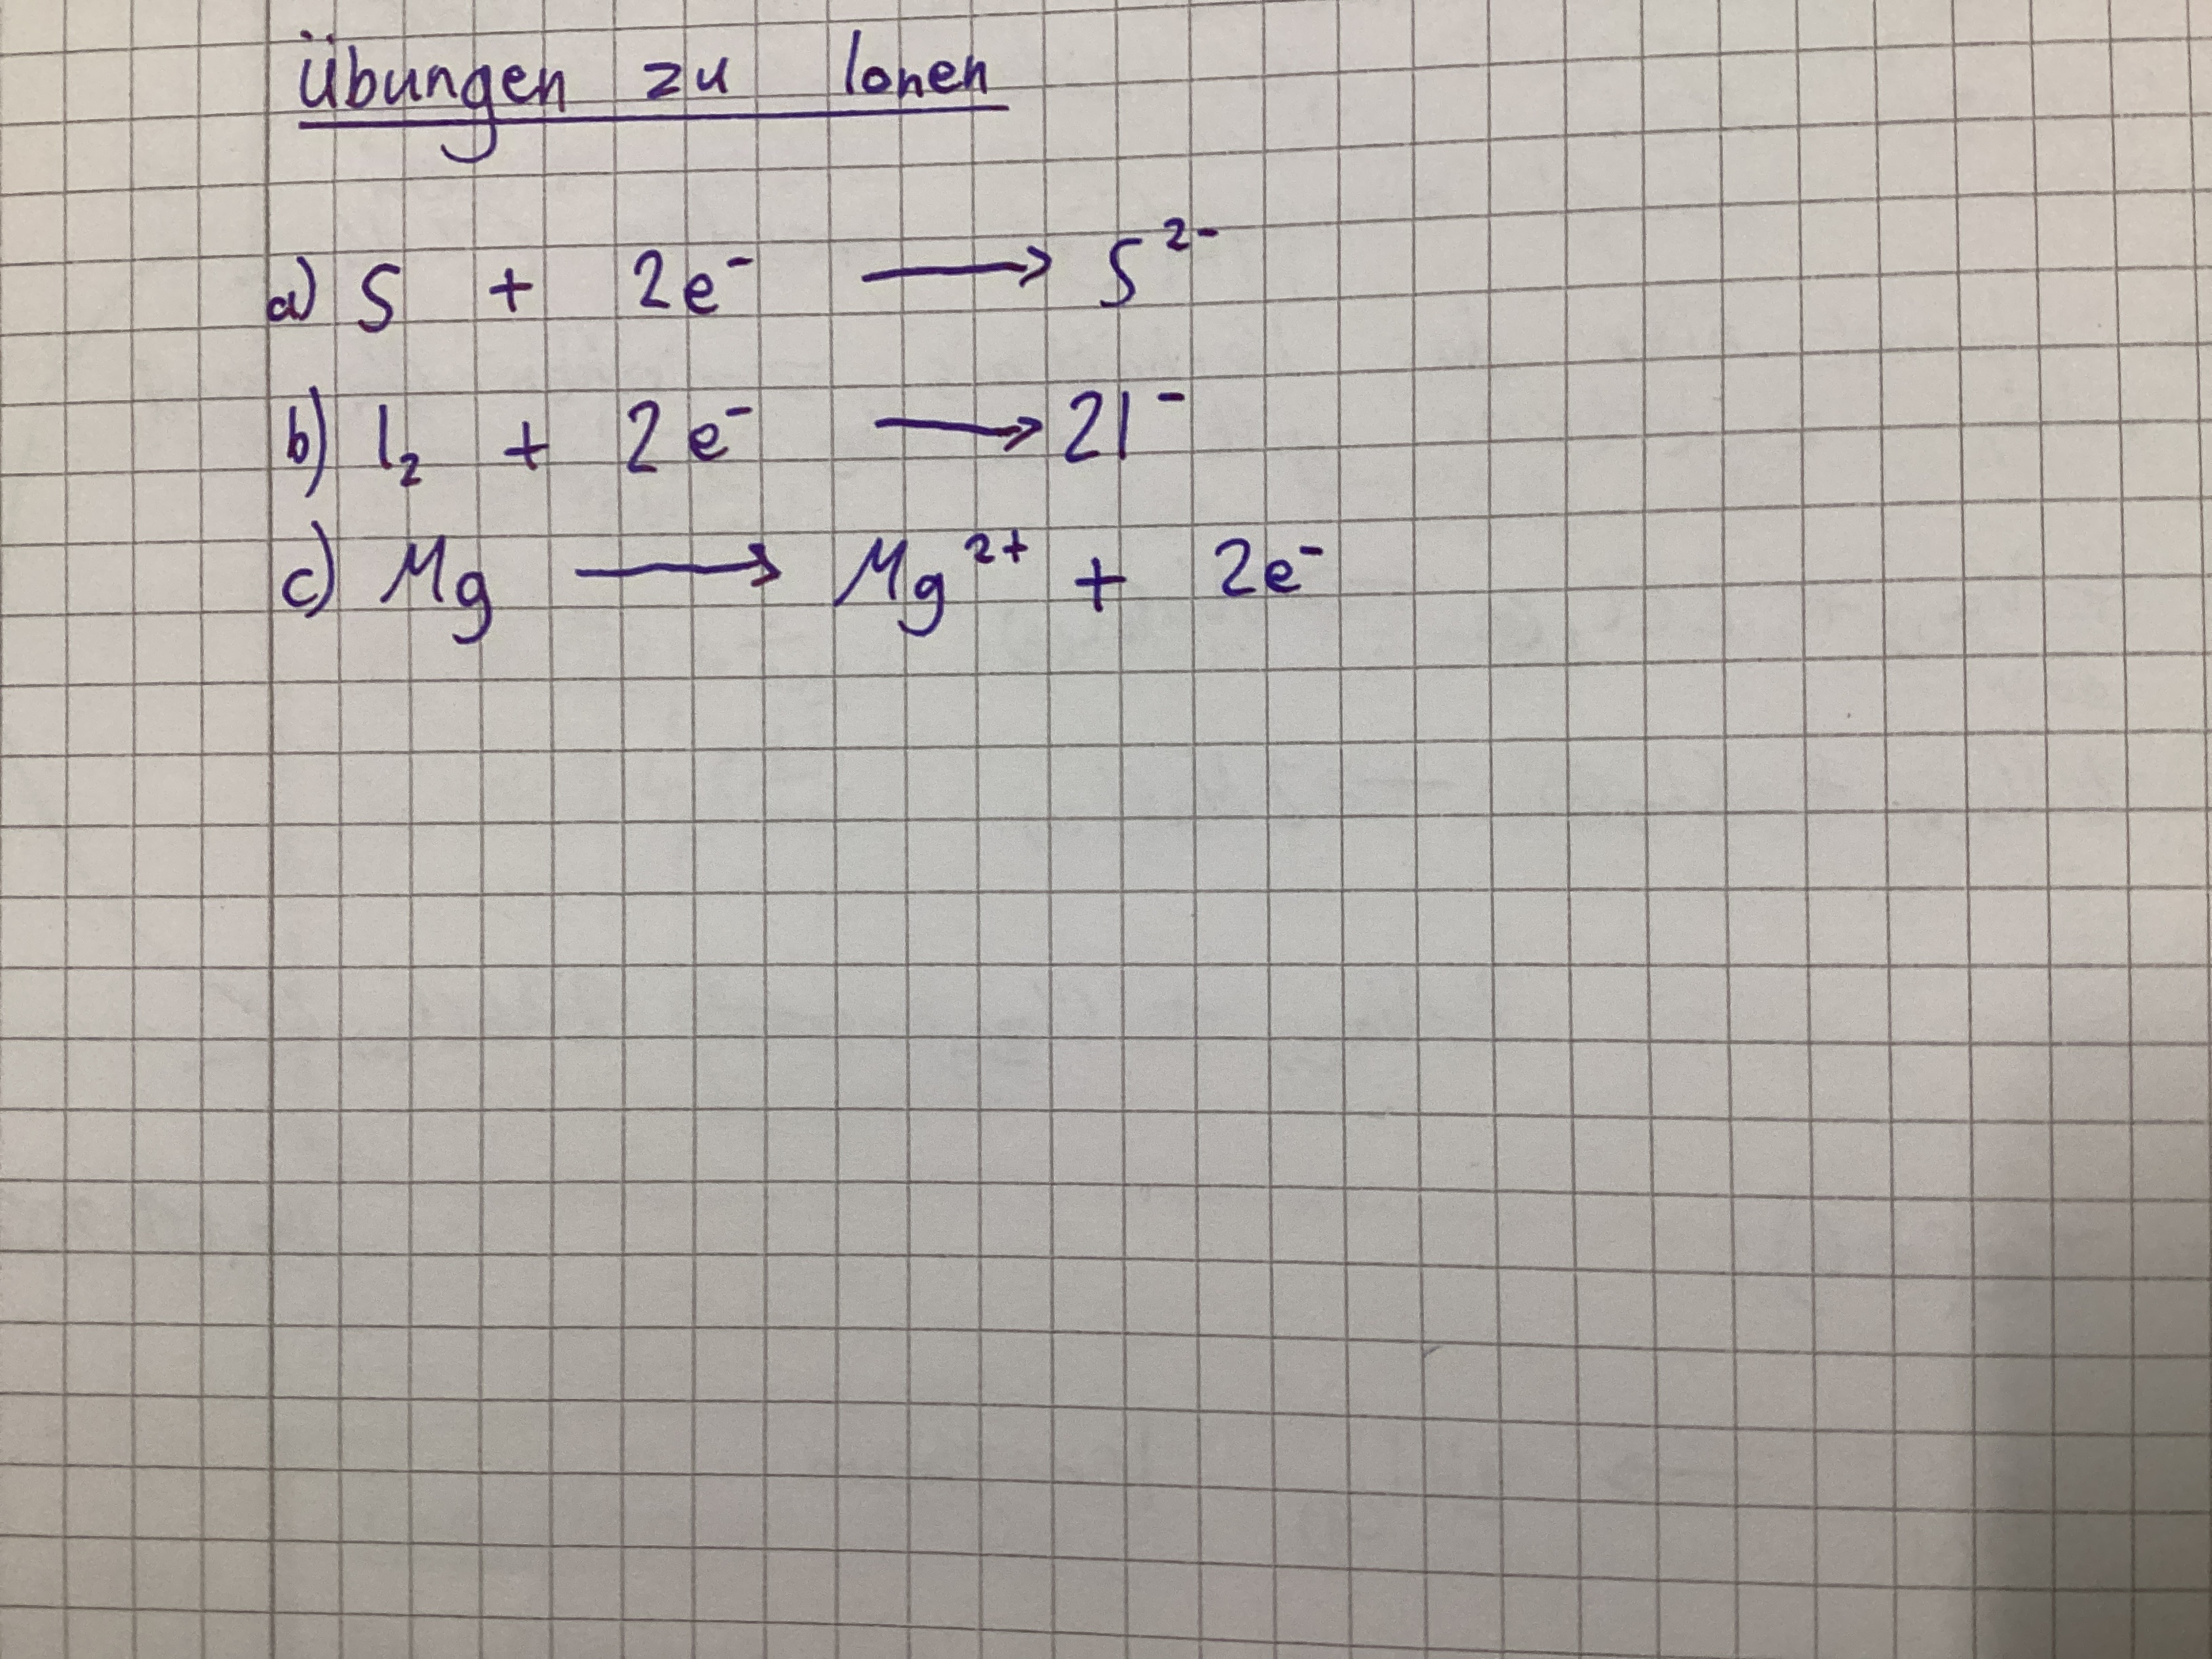 Übungen zu Ionen
a) S + 2e⁻ ⟶ S²⁻
b) I₂ + 2e⁻ ⟶ 2I⁻
c) Mg ⟶ Mg²⁺ + 2e⁻